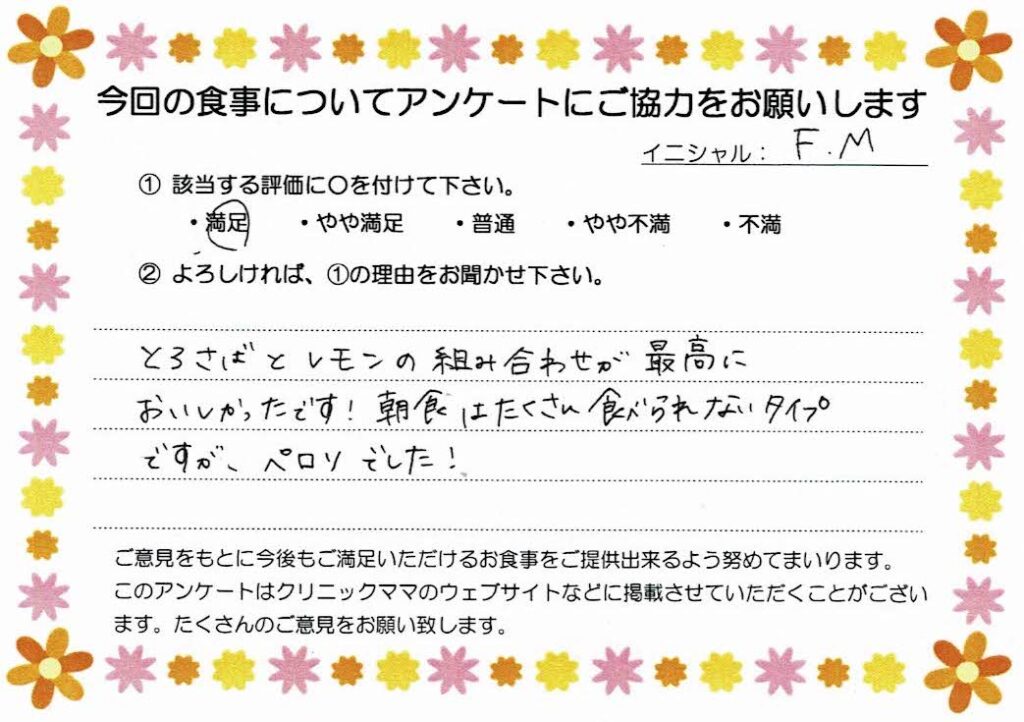 今回の食事についてアンケートにご協力をお願いします
イニシャル： F.M
① 該当する評価に〇を付けて下さい。
・満足 ・やや満足 ・普通 ・やや不満 ・不満
② よろしければ、①の理由をお聞かせ下さい。
とろさばとレモンの組み合わせが最高に
おいしかったです！朝食はたくさん食べられないタイプ
ですが、ペロリでした！
ご意見をもとに今後もご満足いただけるお食事をご提供出来るよう努めてまいります。
このアンケートはクリニックママのウェブサイトなどに掲載させていただくことがござい
ます。たくさんのご意見をお願い致します。